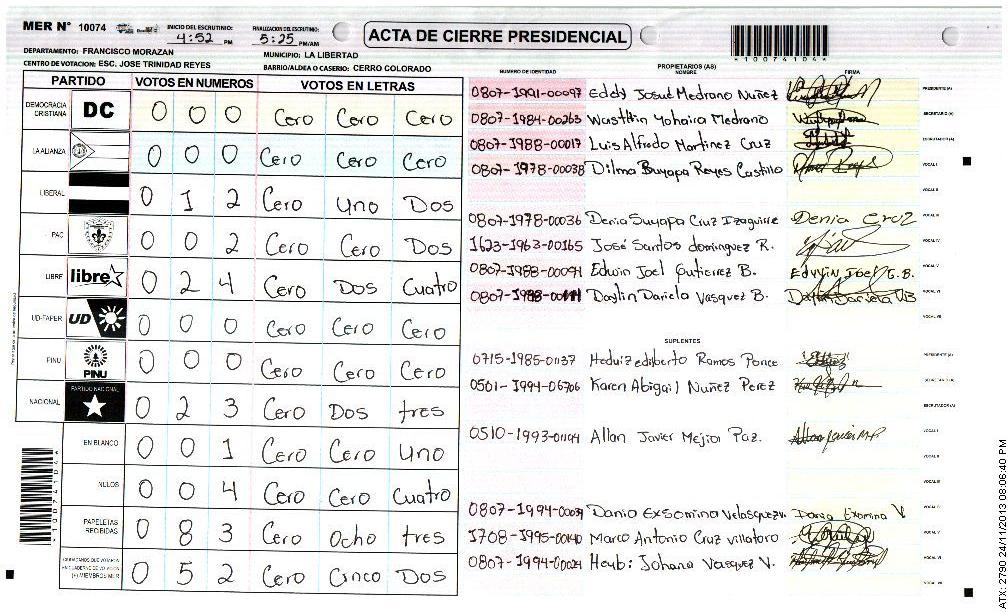 MER N° 10074
INICIO DEL ESCRUTINIO: 4:52 PM
FINALIZACION DEL ESCRUTINIO: 5:25 PM/AM
ACTA DE CIERRE PRESIDENCIAL
*10074104*
DEPARTAMENTO: FRANCISCO MORAZAN
MUNICIPIO: LA LIBERTAD
CENTRO DE VOTACION: ESC. JOSE TRINIDAD REYES
BARRIO/ALDEA O CASERIO: CERRO COLORADO
PARTIDO VOTOS EN NUMEROS VOTOS EN LETRAS
DEMOCRACIA CRISTIANA DC 0 0 0 Cero Cero Cero
LA ALIANZA 0 0 0 Cero Cero Cero
LIBERAL 0 1 2 Cero Uno Dos
PAC 0 0 2 Cero Cero Dos
LIBRE libre 0 2 4 Cero Dos Cuatro
UD-FAPER UD 0 0 0 Cero Cero Cero
PINU PINU 0 0 0 Cero Cero Cero
NACIONAL PARTIDO NACIONAL 0 2 3 Cero Dos tres
EN BLANCO 0 0 1 Cero Cero Uno
NULOS 0 0 4 Cero Cero Cuatro
PAPELETAS RECIBIDAS 0 8 3 Cero Ocho tres
CIUDADANOS QUE VOTARON EN CUADERNO DE VOTACION (+) MIEMBROS MER 0 5 2 Cero Cinco Dos
*10074104*
NUMERO DE IDENTIDAD PROPIETARIOS (AS) NOMBRE FIRMA
0807-1991-00097 Eddy Josué Medrano Nuñez PRESIDENTE (A)
0807-1984-00263 Wasthin Yohaira Medrano SECRETARIO (A)
0807-1988-00017 Luis Alfredo Martinez Cruz ESCRUTADOR (A)
0807-1978-00038 Dilma Suyapa Reyes Castillo VOCAL I
VOCAL II
0807-1978-00036 Denia Suyapa Cruz Izaguirre Denia Cruz VOCAL III
1623-1963-00165 José Santos dominguez R. VOCAL IV
0807-1988-00091 Edwin Joel Gutierrez B. Edwin Joel G.B. VOCAL V
Daylin Dariela Vasquez B. Daylin Dariela V.B VOCAL VI
VOCAL VII
SUPLENTES
0715-1985-01137 Ramos Ponce PRESIDENTE (A)
0501-1994-06706 Karen Abigail Nuñez Perez SECRETARIO (A)
ESCRUTADOR (A)
Allan Javier Mejia Paz. VOCAL I
VOCAL II
VOCAL III
VOCAL IV
1708-1995-00140 Marco Antonio Cruz Villatoro VOCAL V
Johana Vasquez V. VOCAL VI
VOCAL VII
ATX: 2790 24/11/2013 08:06:40 PM